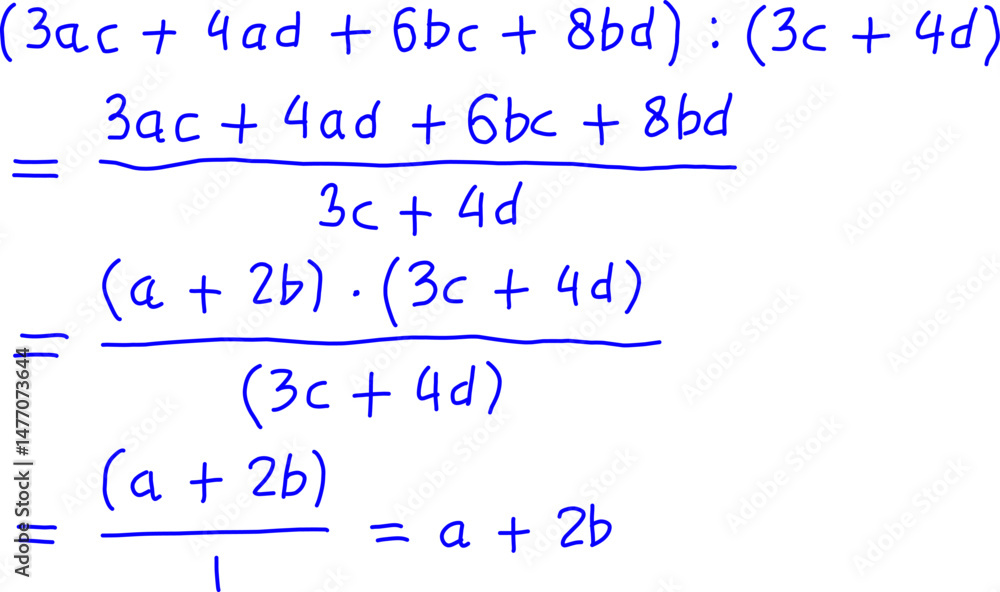 (3ac + 4ad + 6bc + 8bd) : (3c + 4d)
3ac + 4ad + 6bc + 8bd
=
3c + 4d
(a + 2b) · (3c + 4d)
=
(3c + 4d)
(a + 2b)
= = a + 2b
1
Adobe Stock | #1477073644